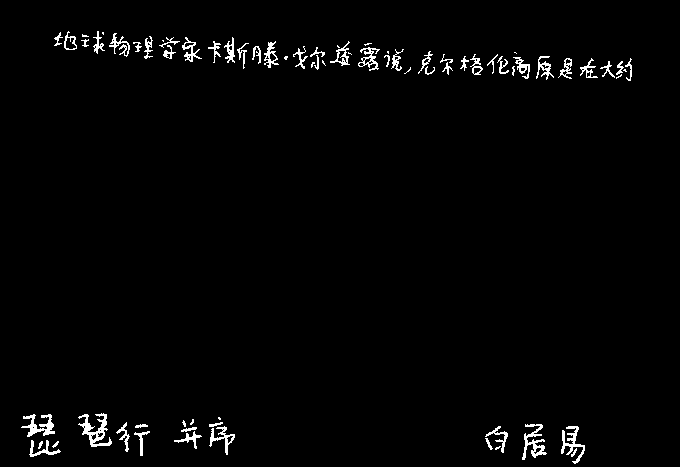 地球物理学家卡斯滕·戈尔兹露说,克尔格伦高原是在大约
琵琶行 并序 白居易